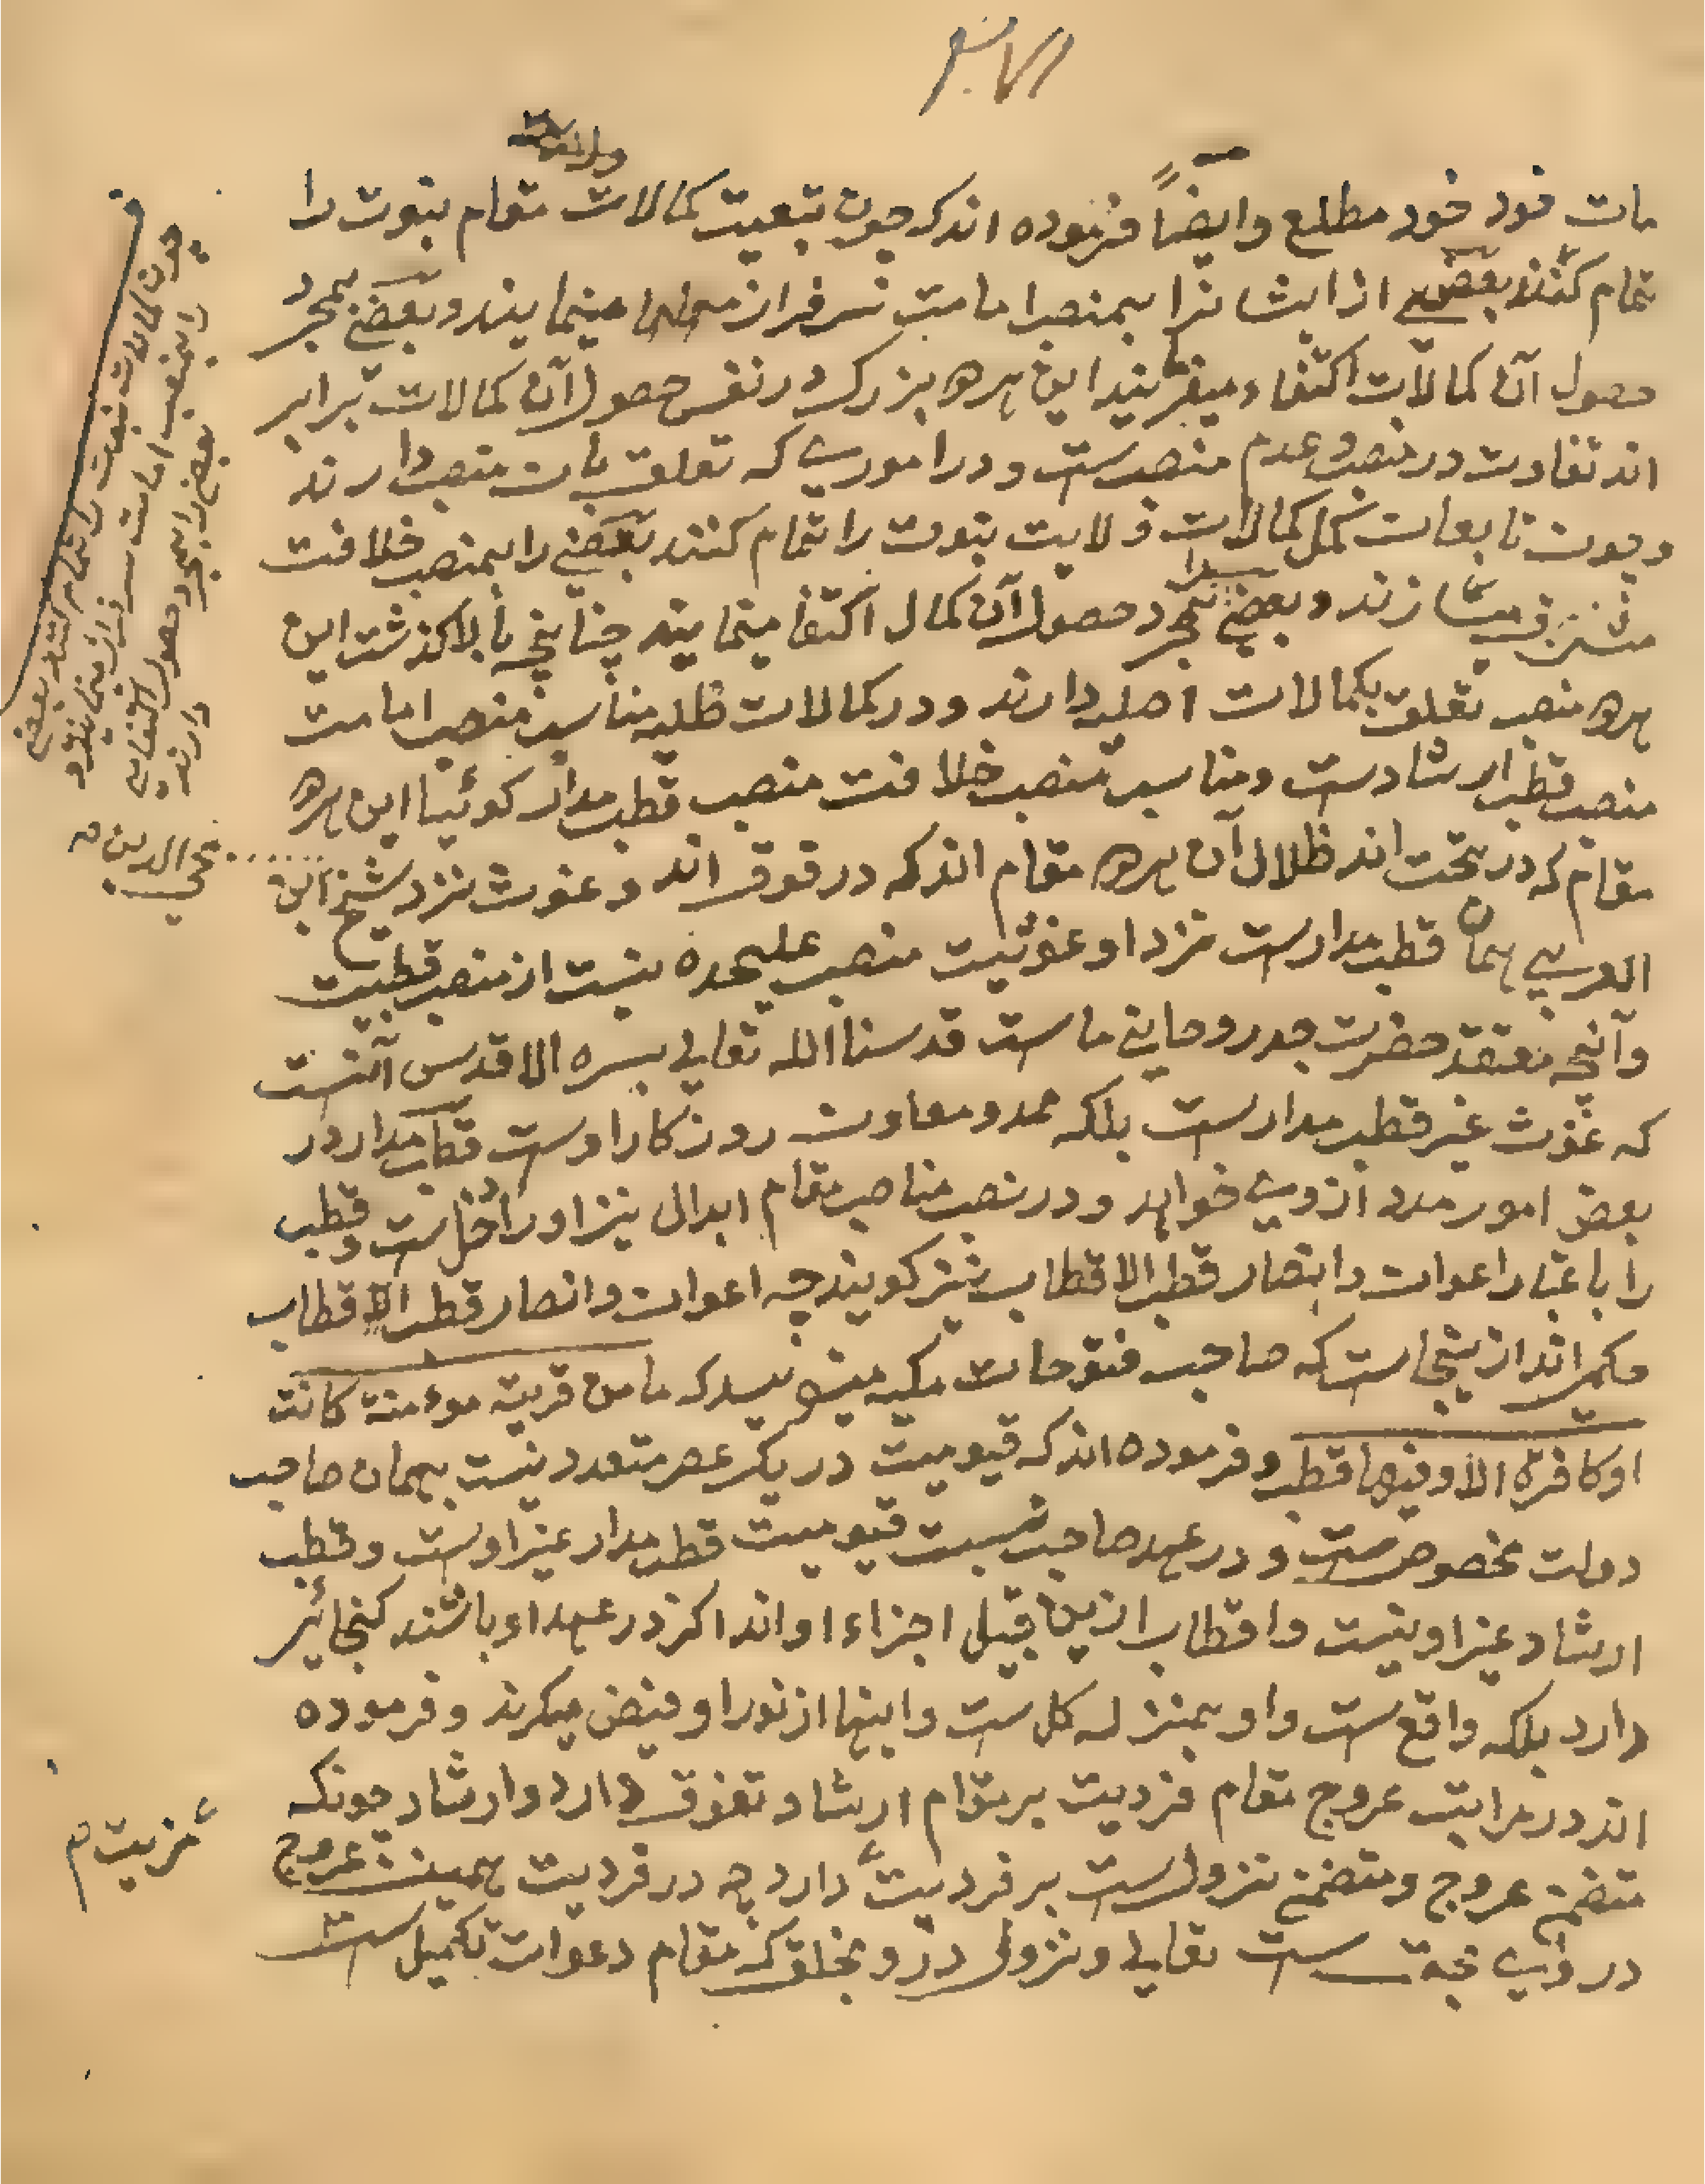 مات خود خود مطلع وایضاً فرموده اند که چون تبعیت کمالات مقام نبوت را
تمام کنند بعضے از ایشانرا بمنصب امامت سرفراز مینمایند و بعضے بمجرد
حصول آن کمالات اکتفاء میفرمایند این هر دو بزرگ در نفس حصول آن کمالات برابر
اند تفاوت در نصب و عدم منصبست و در امورے که تعلق بان منصب دارند
و چون تابعان کمل کمالات ولایت نبوت را تمام کنند بعضے را بمنصب خلافت
مشرف میسازند و بعضے بمجرد حصول آن کمال اکتفا مینمایند چنانچه بالا گذشت این
هر دو منصب تعلق بکمالات اصلیه دارند و در کمالات ظلیه مناسب منصب امامت
منصب قطب ارشادست و مناسب منصب خلافت منصب قطب مدار گوئیا این هر دو
مقام که در تحت اند ظلال آن هر دو مقام اند که در فوق اند و غوث نزد شیخ ابن
العربی همان قطب مدارست نزد او غوثیت منصب علیحده نیست از منصب قطبیت
وآنچه معتقد حضرت جد روحانی ماست قدسنا الله تعالی بسره الاقدس آنست
که غوث غیر قطب مدارست بلکه ممد و معاون روزگار اوست قطب مدار در
بعض امور مدد از وے خواهد و در نصب مناصب مقام ابدال نیز او را دخل است و قطب
را باعتبار اعوان و انصار قطب الاقطاب نیز گویند چه اعوان وانصار قطب الاقطاب
حکمی اند ازینجاست که صاحب فتوحات مکیه مینویسد که ما من قریة موءمنة کانت
او کافرة الا وفیها قطب و فرموده اند که قیومیت در یک عصر متعدد نیست بهمان صاحب
دولت مخصوصست و در عهد صاحب نسبت قیومیت قطب مدار غیر اوست و قطب
ارشاد غیر او نیست و اقطاب ازین قبیل اجزاء او اند اگر در عهد او باشند گنجائش
دارد بلکه واقع ست و او بمنزله کل ست و اینها از نور او فیض میگرند و فرموده
اند در مراتب عروج مقام فردیت بر مقام ارشاد تفوق دارد و ارشاد چونکه
متضمن عروج و متضمن نزول ست بر فردیت دارد چه در فردیت همین عروج
در ست تعالی و نزول در و بخلق که مقام دعوات تکمیل ست
چون کمالات نبوت را تمام کنند بعضے
را بمنصب امامت سرفراز مینمایند و
بعضے را بمجرد حصول اکتفا می
دارند
محی الدین م
مزیت م